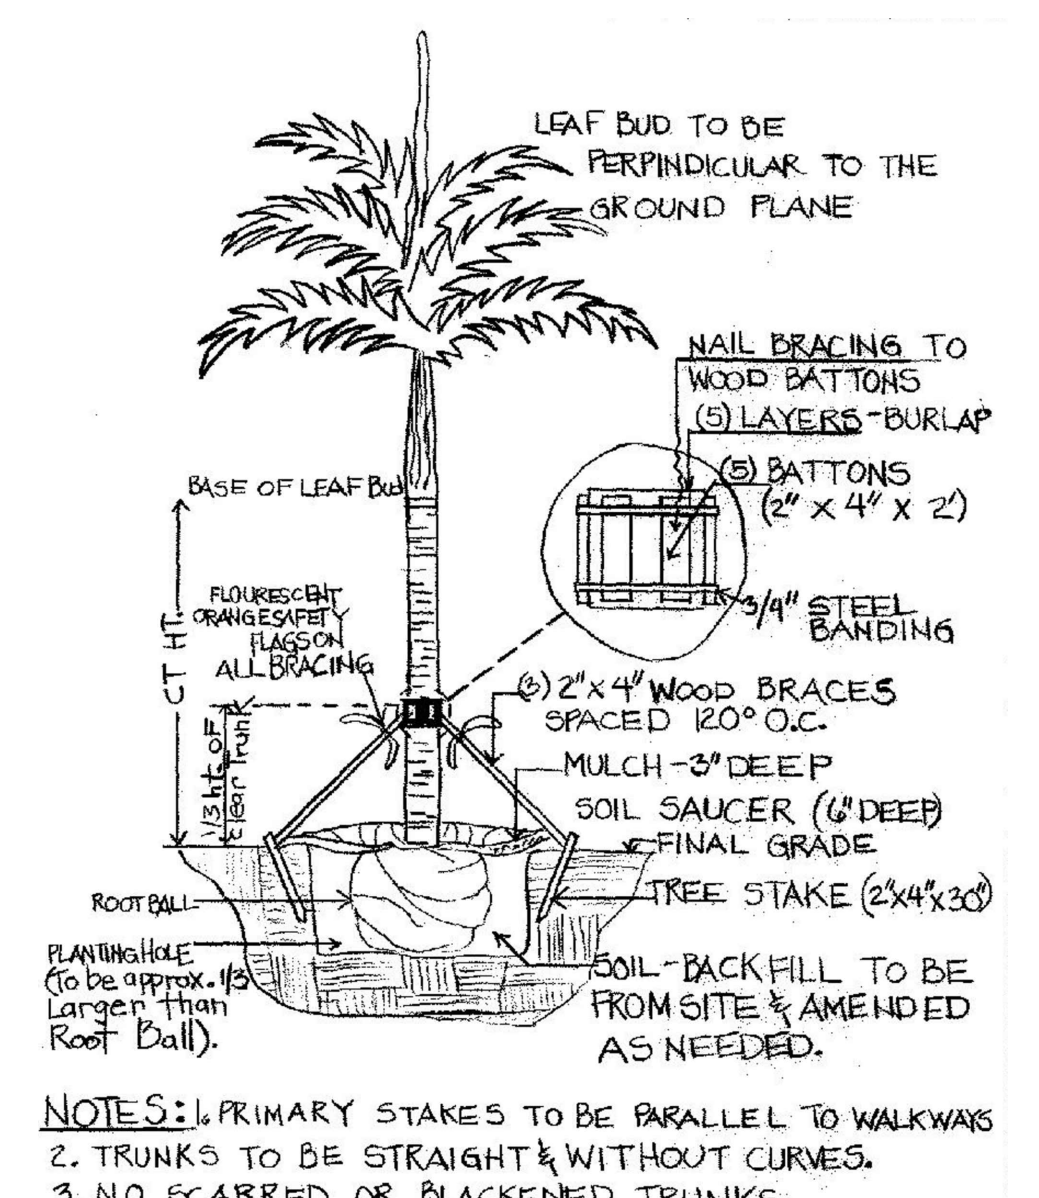 LEAF BUD TO BE
PERPINDICULAR TO THE
GROUND PLANE
NAIL BRACING TO
WOOD BATTONS
(5) LAYERS-BURLAP
(5) BATTONS
(2" X 4" X 2')
3/4" STEEL
BANDING
BASE OF LEAF BUD
CT HT.
FLOURESCENT
ORANGE SAFETY
FLAGS ON
ALL BRACING
1/3 ht. OF
clear Trunk
(3) 2" X 4" WOOD BRACES
SPACED 120° O.C.
MULCH-3" DEEP
SOIL SAUCER (6" DEEP)
FINAL GRADE
TREE STAKE (2"X4"X30")
ROOT BALL
PLANTING HOLE
(To be approx. 1/3
Larger than
Root Ball).
SOIL-BACKFILL TO BE
FROM SITE & AMENDED
AS NEEDED.
NOTES: 1. PRIMARY STAKES TO BE PARALLEL TO WALKWAYS
2. TRUNKS TO BE STRAIGHT & WITHOUT CURVES.
3. NO SCARRED OR BLACKENED TRUNKS